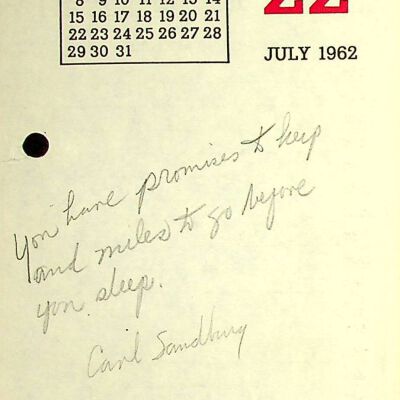 8 9 10 11 12 13 14
15 16 17 18 19 20 21
22 23 24 25 26 27 28
29 30 31
22
JULY 1962
You have promises to keep
and miles to go before
you sleep.
Carl Sandburg